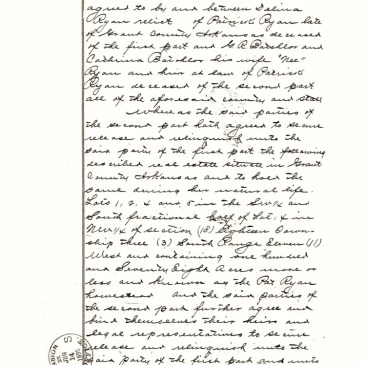 agreed to by and between Delina
Ryan relict of Patrick Ryan late
of Grant County Arkansas deceased
of the first part and G R
Catherine his wife "Nee"
Ryan and heir at law of Patrick
Ryan deceased of the second part
all of the aforesaid county and state
Whereas the said parties of
the second part hath agreed to secure
release and relinquish unto the
said party of the first part the following
described real estate situate in Grant
County Arkansas and to hold the
same during her natural life.
Lots 1, 2, 4 and 5 in the SW 1/4 and
South fractional half of Lot 4 in
NW 1/4 of section (18) Eighteen Town-
ship three (3) South Range Eleven (11)
West and containing one hundred
and Seventy Eight Acres more or
less and known as the Pat Ryan
homestead and the said parties of
the second part further agree and
bind themselves their heirs and
legal representatives to secure
release and relinquish unto the
said party of the first part and unto